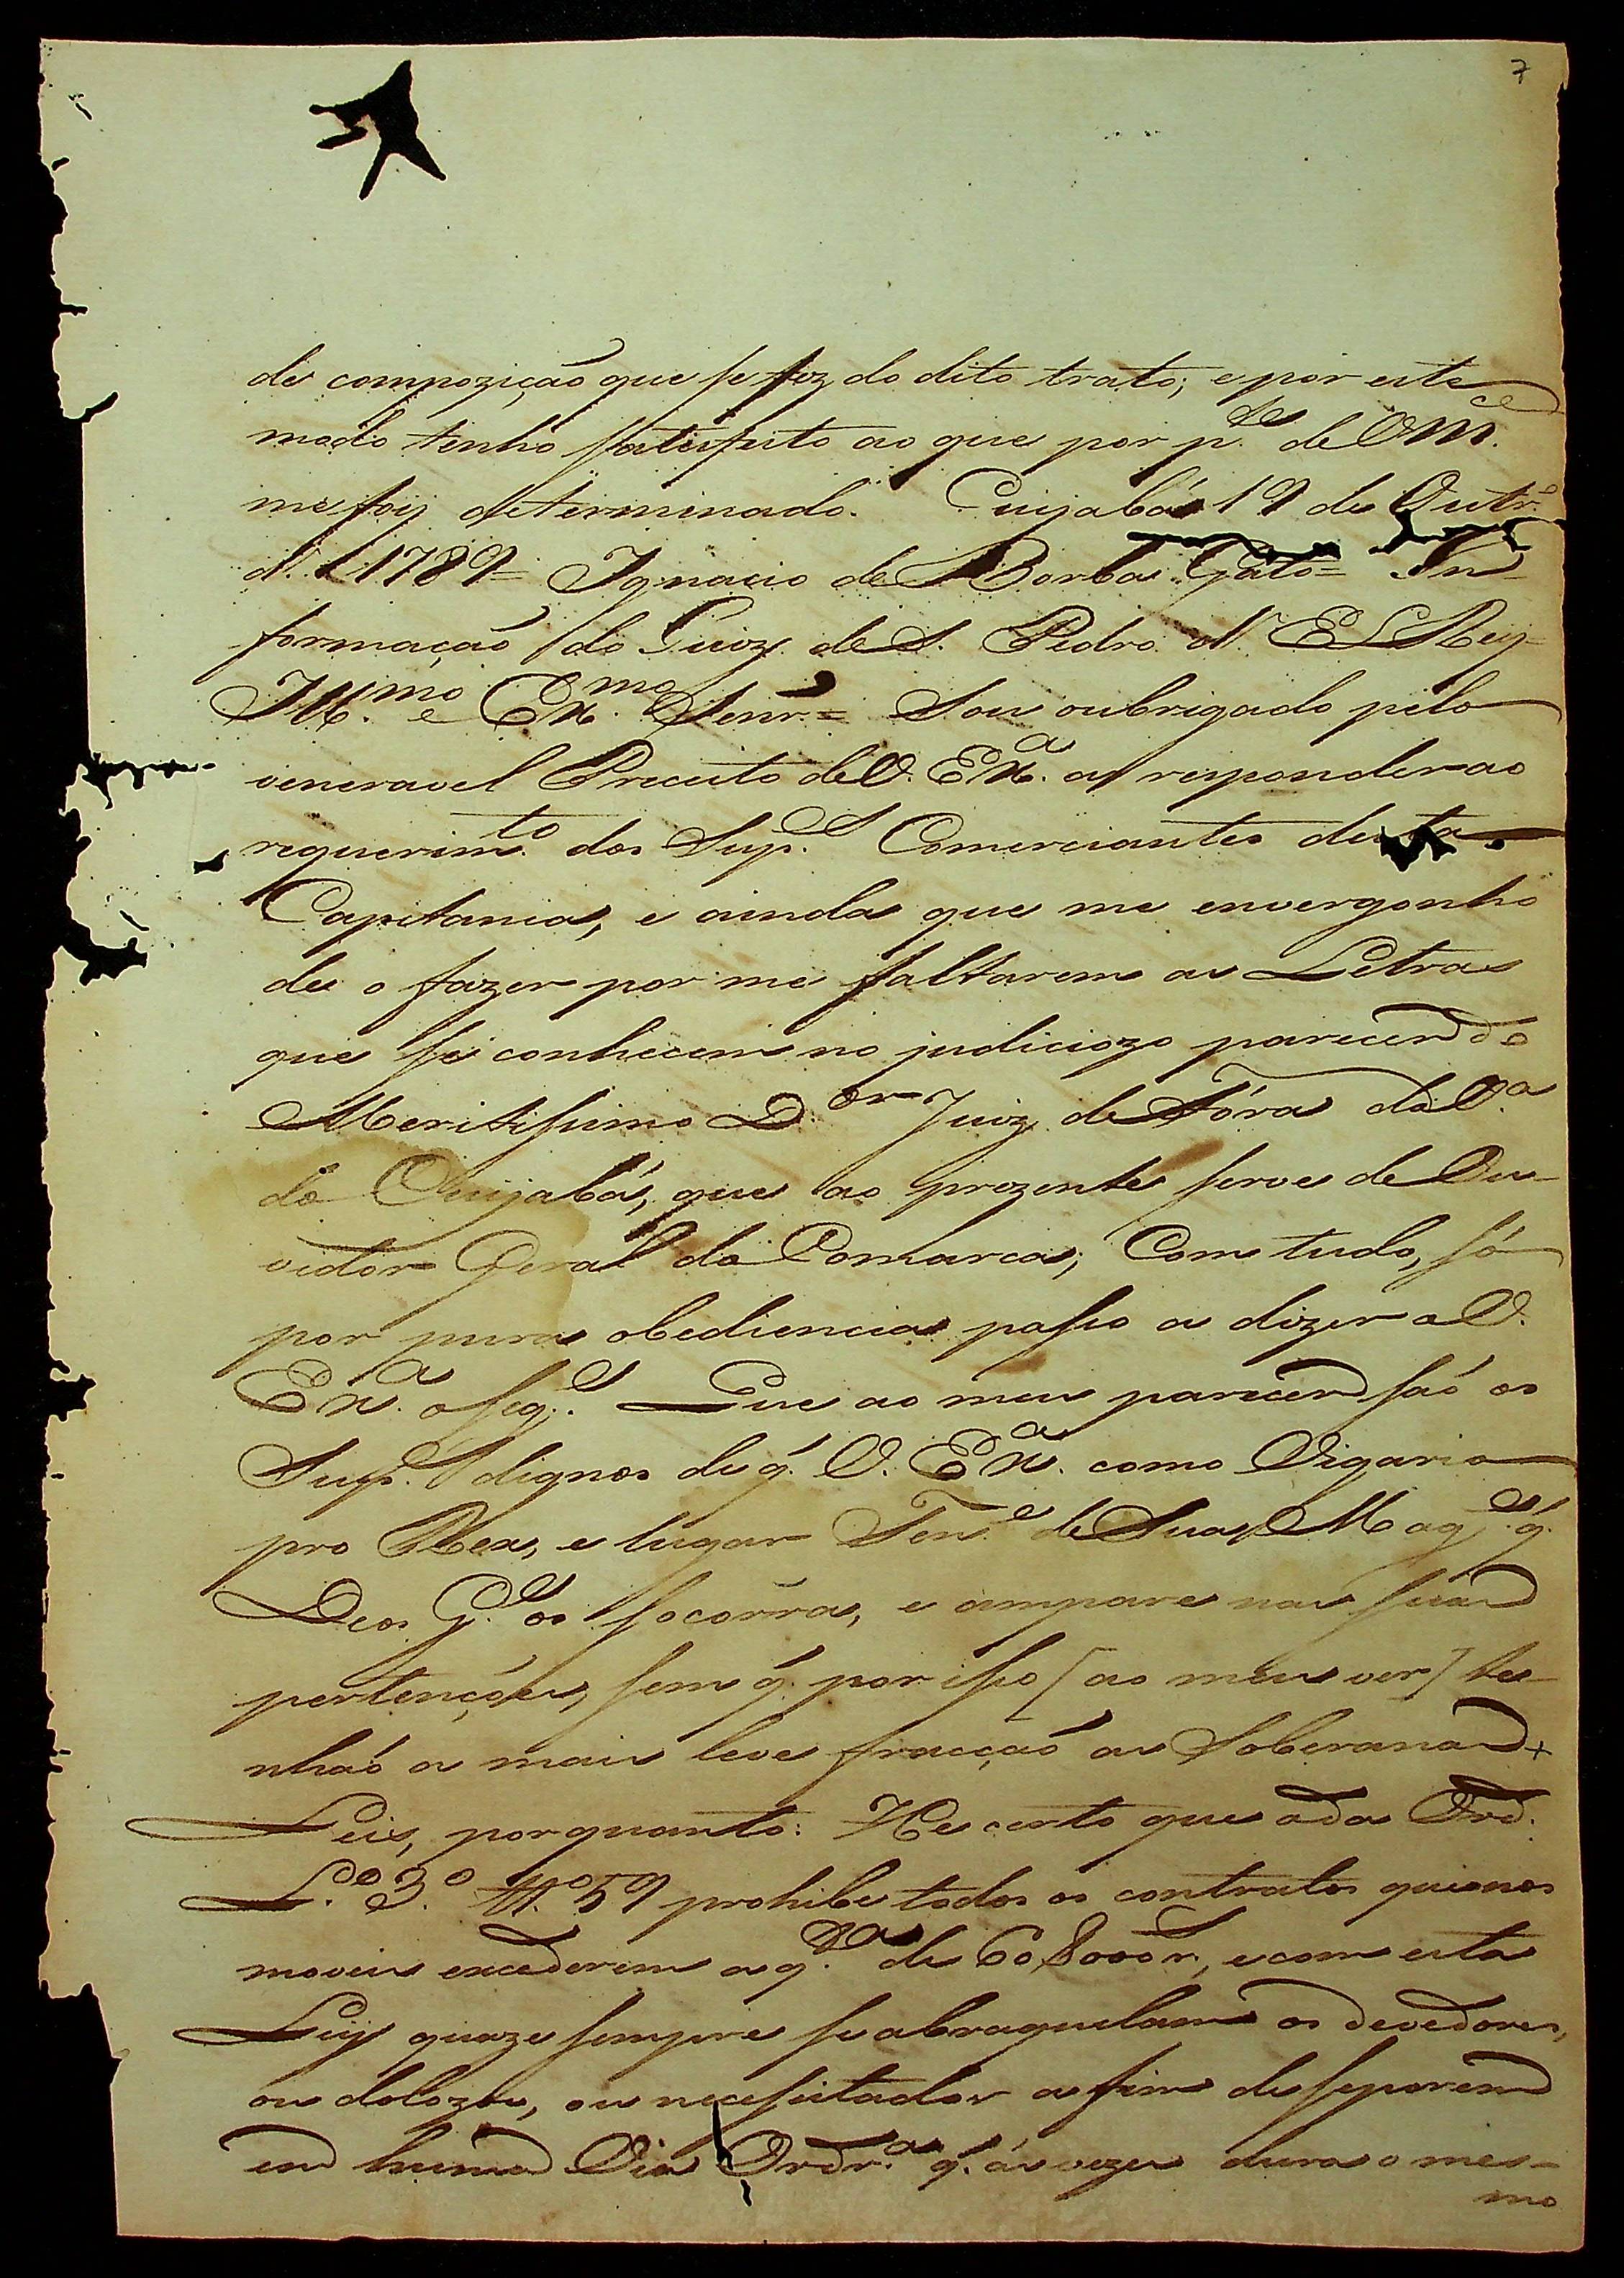 7
de compozição que se fez do dito trato; e por este
modo tenho satisfeito ao que por p.te de Vm.ce
me foij determinado. Cuijabá 19 de Outr.o
d. 1789 = Ignacio de Borba Gato = In-
formação do Juiz de S. Pedro d' El Rey
Ill.mo e Ex.mo Senr.= Sou oubrigado pelo
veneravel Preceito de V. Ex.a a responder ao
requerim.to dos Sup.es Comerciantes desta
Capitania, e ainda que me envergonho
de o fazer por me faltarem as Letras
que se conhecem no judiciozo parecer do
Meritissimo D.or Juiz de Fóra da V.a
do Cuijabá, que ao prezente serve de Ou-
vidor Geral da Comarca; Com tudo, só
por pura obediencia passo a dizer a V.
Ex.a o seg.e Que ao meu parecer saó os
Sup.es dignos de q. V. Ex.a como Vigario
pro Rex, e lugar Ten.e de Sua Mag.e q.
Deos G.e os socorra, e ampare nas suas
pertençoẽs, sem q. por isso [ao meu ver] te-
nhaó a mais leve fracçaó as Soberanas +
Leis, porquanto: He certo que a da Ord.
L.o 3.o tt.o 59 prohibe todos os contratos que nos
moveis excederem a q.ta de 60$000 r.s, e com esta
Leij quaze sempre se abraquelam os devedores,
ou dolozos, ou necessitados a fim de se porem
em huma Via Ordr.a q. ás vezes dura o mes-
mo